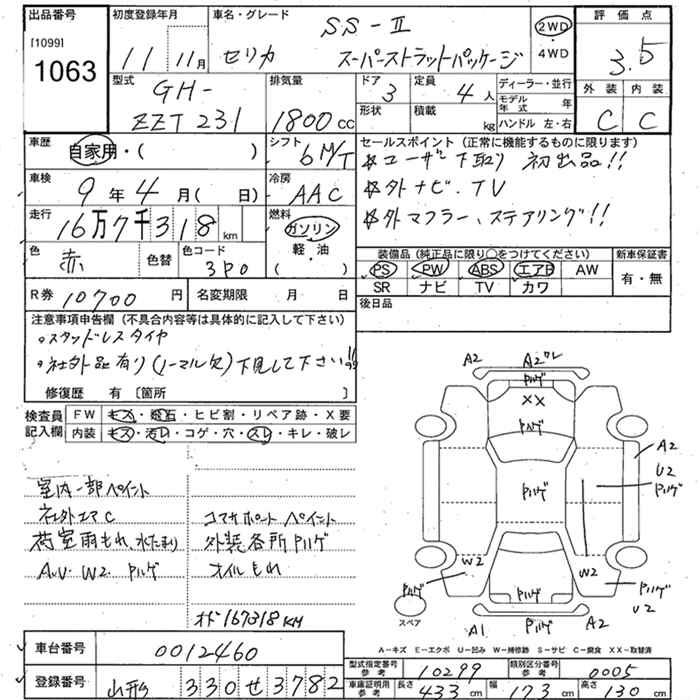 出品番号 初度登録年月 車名・グレード SS-Ⅱ 2WD 評価点
[1099] 11年 11月 セリカ スーパーストラットパッケージ ・4WD 3.5
1063 型式 排気量 ドア 定員 ディーラー・並行 外装 内装
GH- 3 4人 モデル年式 年 C C
ZZT231 1800cc 形状 積載 kg ハンドル 左・右
車歴 自家用・( ) シフト 6M/T セールスポイント(正常に機能するものに限ります)
*ユーザー下取り 初出品!!
車検 9年4月( 日) 冷房 AAC *外ナビ.TV
走行 16万7千318km 燃料 ガソリン *外マフラー、ステアリング!!
色 赤 色替 色コード 3P0 軽・油 ( )
装備品(純正品に限り○をつけてください) 新車保証書
PS PW ABS エアB AW 有・無
SR ナビ TV カワ
R券 10700円 名変期限 月 日 後日品
注意事項申告欄(不具合内容等は具体的に記入して下さい)
・スタッドレスタイヤ
・社外品有り(ノーマル欠)下見して下さい!!
修復歴 有 〔箇所 〕
検査員記入欄 FW キズ・飛石・ヒビ割・リペア跡・X要
内装 キズ・汚レ・コゲ・穴・スレ・キレ・破レ
室内一部ペイント
社外エアC コアサポートペイント
荷室雨もれ、水たまり 外装各所Pハゲ
AU.W2 Pハゲ オイルもれ
オド167318KM
A2 A2ワレ
Pハゲ
XX
Pハゲ
A2
Pハゲ U2 Pハゲ
W2 W2
Pハゲ Pハゲ Pハゲ U2
スペア A1 A2
A-キズ E-エクボ U-凹み W-補修跡 S-サビ C-腐食 XX-取替済
車台番号 0012460
型式指定番号 参考 10299 類別区分番号 参考 0005
登録番号 山形 330 せ 3782
車庫証明用 参考 長さ 433cm 幅 173cm 高さ 130cm